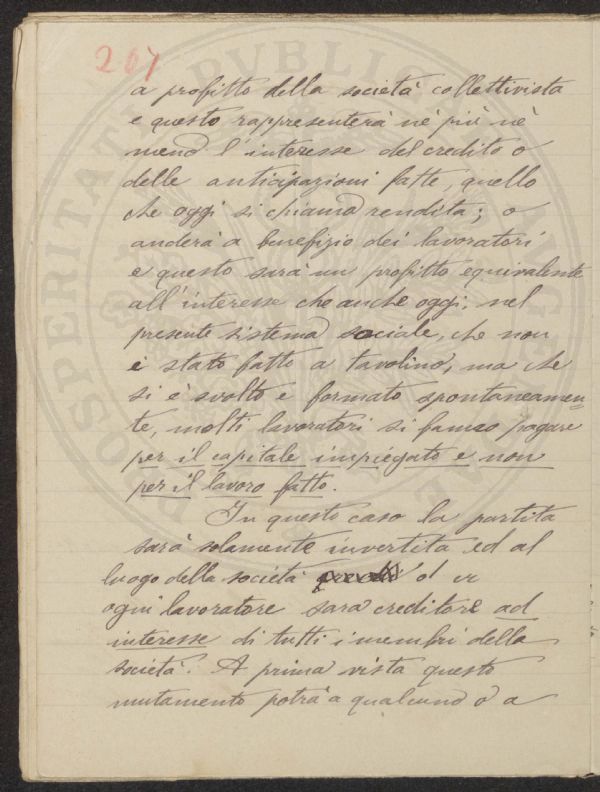 207
a profitto della società collettivista
e questo rappresenterà nè più nè
meno l'interesse del credito o
delle anticipazioni fatte, quello
che oggi si chiama rendita; o
anderà a benefizio dei lavoratori
e questo sarà un profitto equivalente
all'interesse che anche oggi, nel
presente sistema sociale, che non
è stato fatto a tavolino, ma che
si è svolto e formato spontaneamen=
te, molti lavoratori si fanno pagare
per il capitale impiegato e non
per il lavoro fatto.
In questo caso la partita
sarà solamente invertita ed al
luogo della società
ogni lavoratore sarà creditore ad
interesse di tutti i membri della
società. A prima vista questo
mutamento potrà a qualcuno o a
PROSPERITATI PVBLICAE AVGENDAE